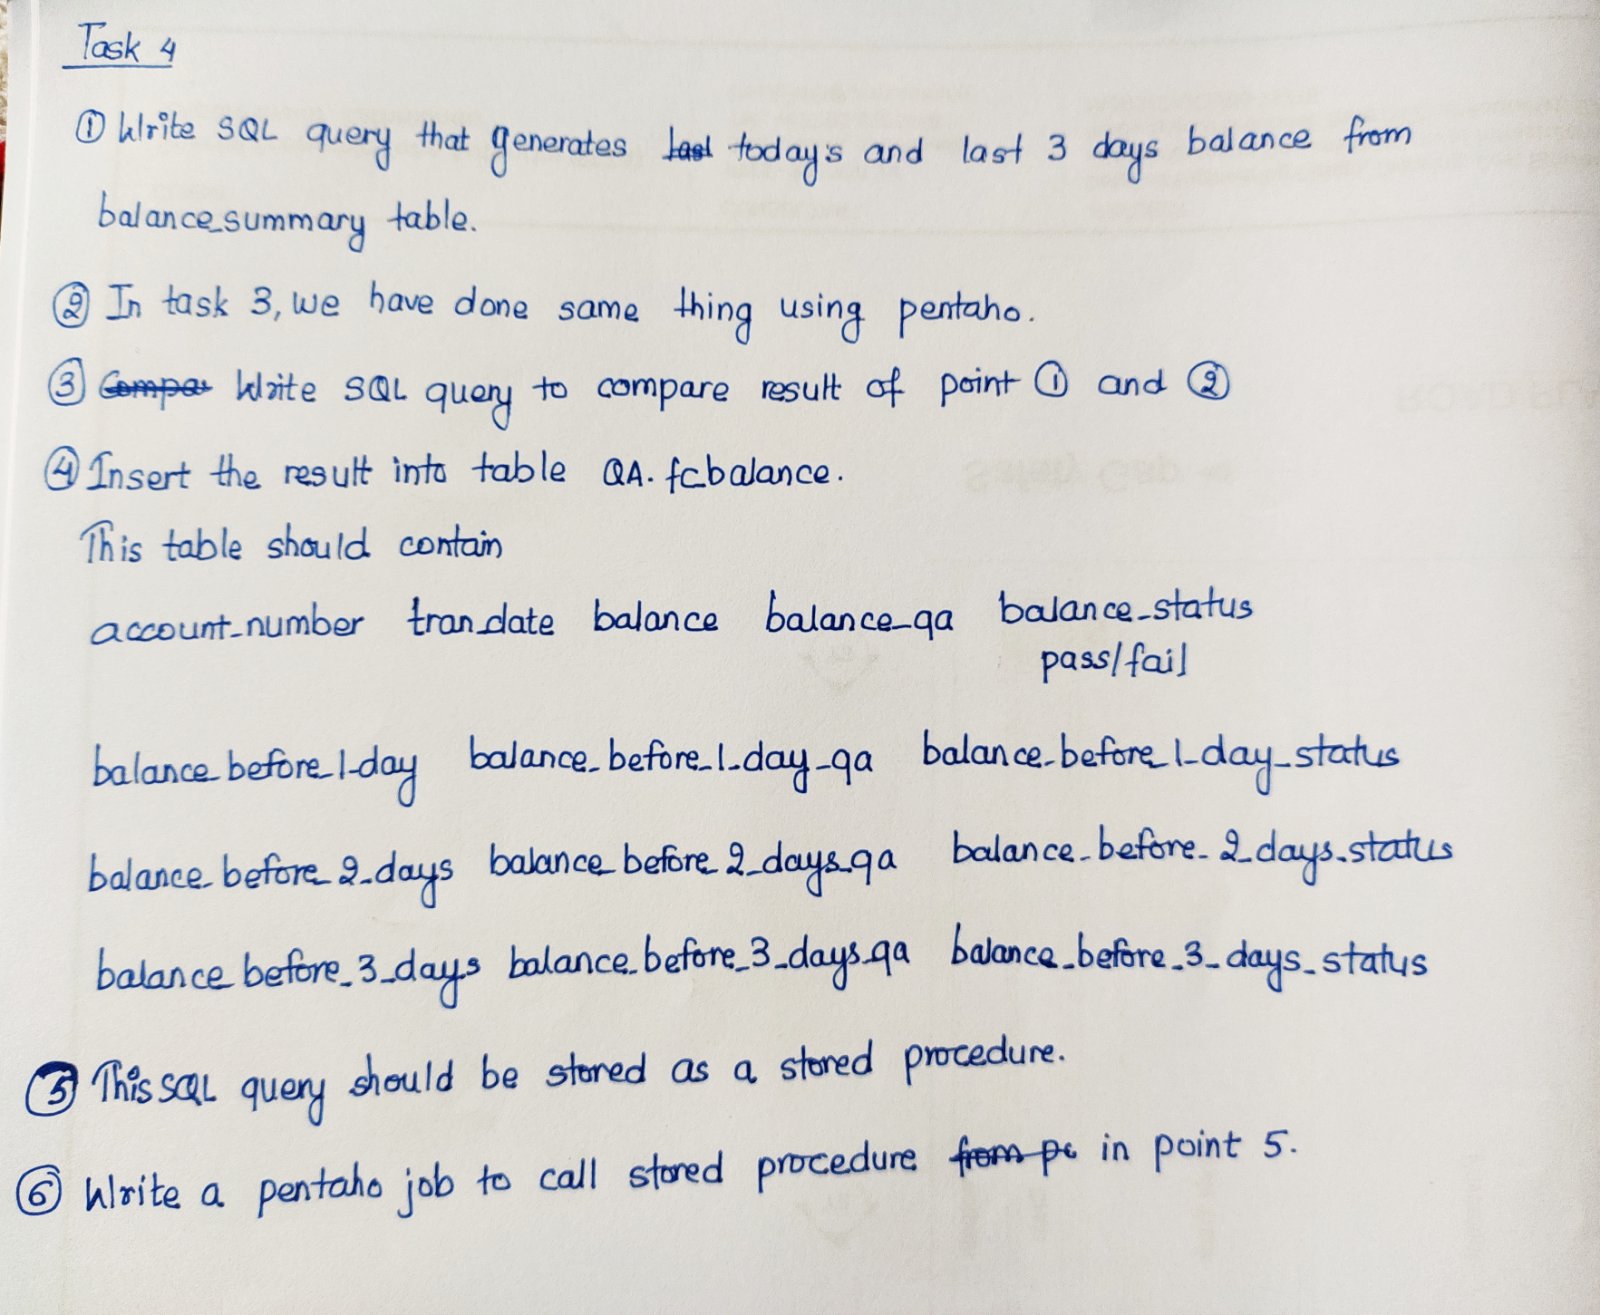 Task 4
① Write SQL query that generates last today's and last 3 days balance from
balance_summary table.
② In task 3, we have done same thing using pentaho.
③ Compar Write SQL query to compare result of point ① and ②
④ Insert the result into table QA. fcbalance.
This table should contain
account_number tran_date balance balance_qa balance_status
pass/fail
balance_before_1_day balance_before_1_day_qa balance_before_1_day_status
balance_before_2_days balance_before_2_days_qa balance_before_2_days_status
balance_before_3_days balance_before_3_days_qa balance_before_3_days_status
⑤ This SQL query should be stored as a stored procedure.
⑥ Write a pentaho job to call stored procedure from pc in point 5.